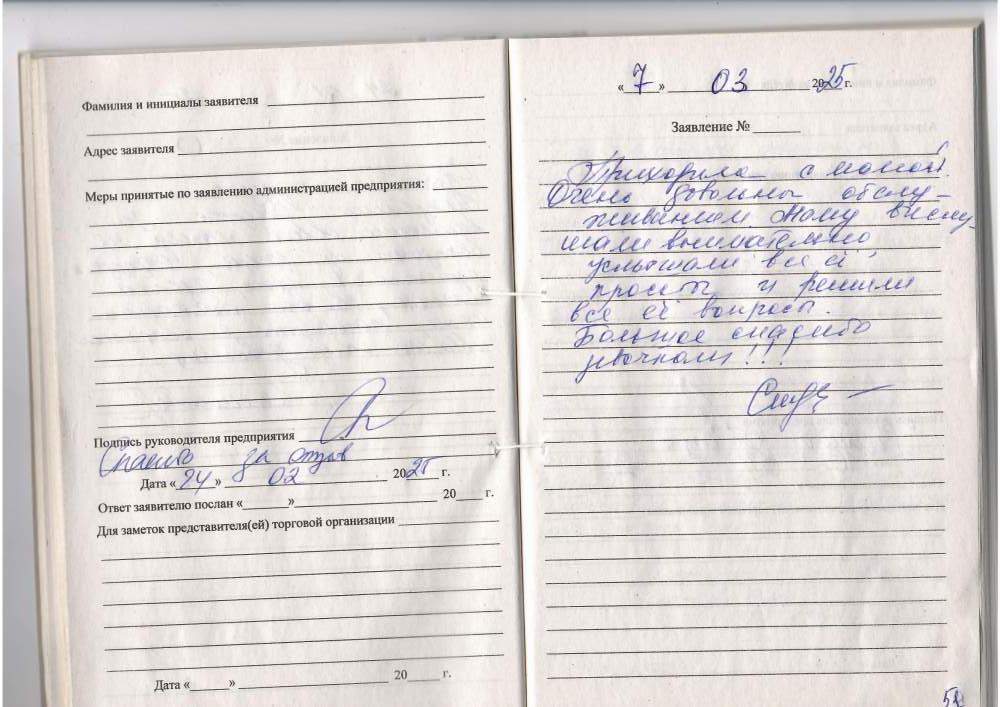 Фамилия и инициалы заявителя
Адрес заявителя
Меры принятые по заявлению администрацией предприятия:
Подпись руководителя предприятия
Спасибо за отзыв
Дата «24» 02 2025 г.
Ответ заявителю послан « » 20 г.
Для заметок представителя(ей) торговой организации
Дата « » 20 г.
«7» 03 2025 г.
Заявление №
Приходила с мамой.
Очень довольны обслу-
живанием Маму выслу-
шали внимательно,
услышали все её
просьбы и решили
все её вопросы.
Большое спасибо
девочкам!!!